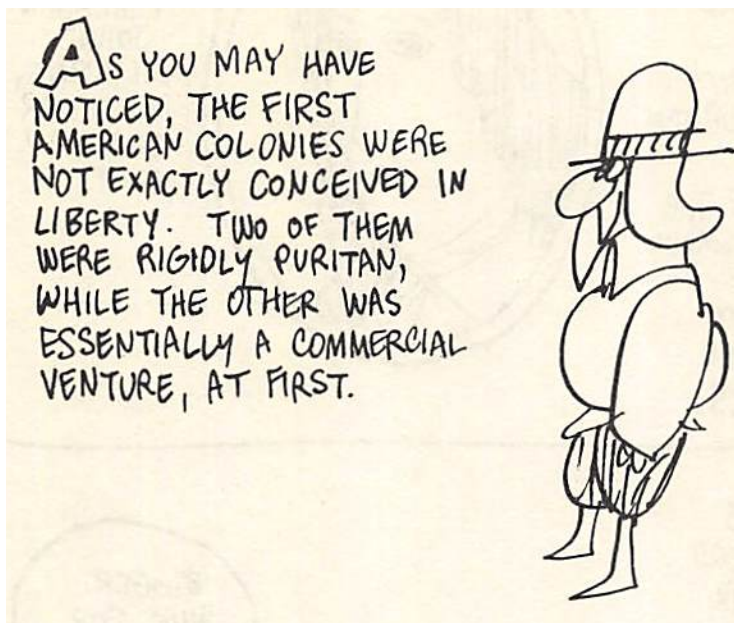 AS YOU MAY HAVE
NOTICED, THE FIRST
AMERICAN COLONIES WERE
NOT EXACTLY CONCEIVED IN
LIBERTY. TWO OF THEM
WERE RIGIDLY PURITAN,
WHILE THE OTHER WAS
ESSENTIALLY A COMMERCIAL
VENTURE, AT FIRST.